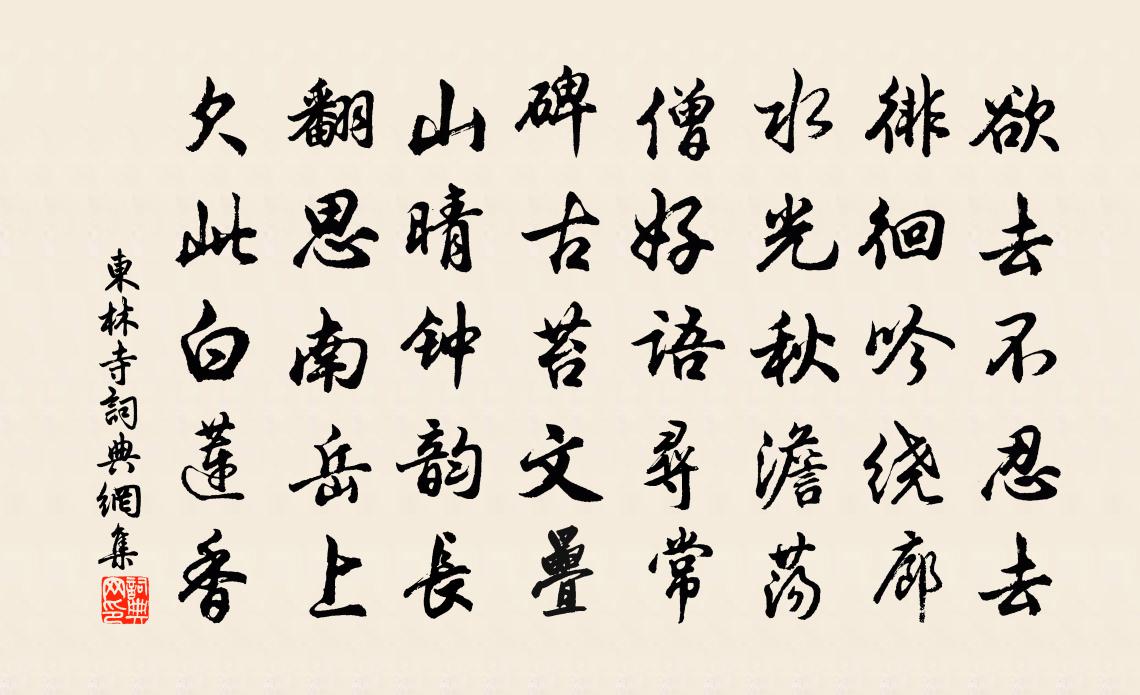 欲去不忍去
徘徊吟绕廊
水光秋澹荡
僧好语寻常
碑古苔文疊
山晴钟韵長
翻思南岳上
欠此白蓮香
東林寺詞典網集
詞典网印